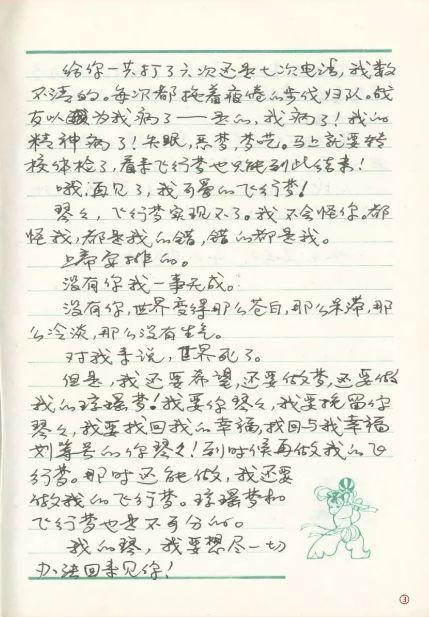 给你一共打了六次还是七次电话,我数
不清的。每次都拖着疲倦的步伐归队。战
友以为我病了——是的,我病了!我的
精神病了!失眠,恶梦,梦呓。马上就要转
校体检了,看来飞行梦也只能到此结束!
哦,再见了,我可爱的飞行梦!
琴,飞行梦实现不了。我不会怪你。都
怪我,都是我的错,错的都是我。
上帝安排的。
没有你我一事无成。
没有你,世界变得那么苍白,那么呆滞,那
么冷淡,那么没有生气。
对我来说,世界死了。
但是,我还要希望,还要做梦,还要做
我的 梦!我要你琴,我要挽留你
琴,我要找回我的幸福,找回与我幸福
划等号的你琴!到时候再做我的飞
行梦。那时还能做,我还要
做我的飞行梦。 梦和
飞行梦也是不可分的。
我的琴,我要想尽一切
办法回来见你!
③